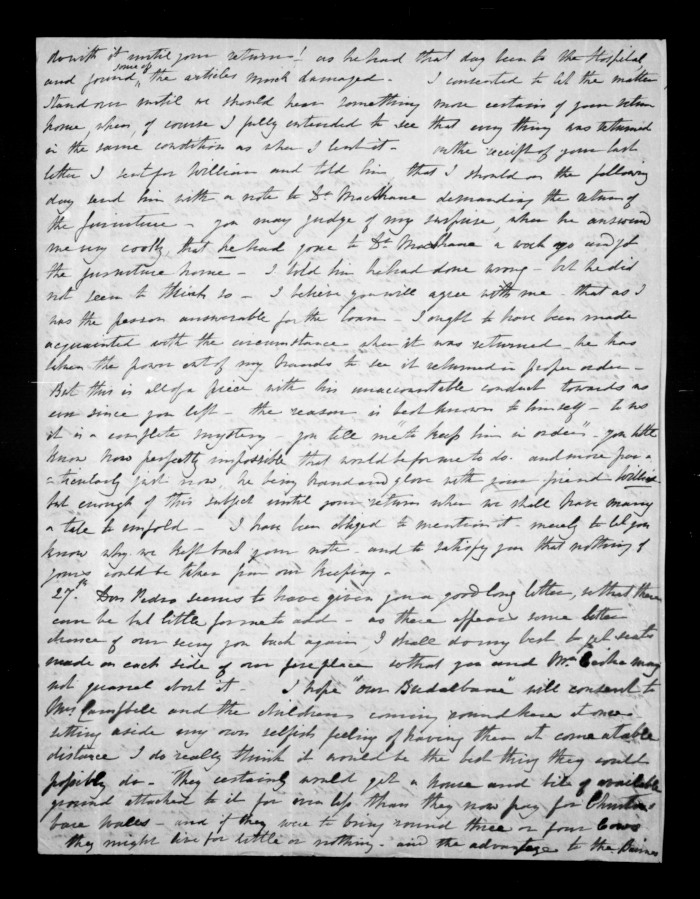 do with it until your return! as he had that day been to the Hospital
and found some of the articles much damaged - I consented to let the matter
stand over until we should hear something more certain of your return
home, when, of course I fully intended to see that every thing was returned
in the same condition as when I lent it - On the receipt of your last
letter I sent for William and told him that I should on the following
day send him with a note to Dr MacShane demanding the return of
the furniture - you may judge of my surprise, when he answered
me very coolly, that he had gone to Dr MacShane a week ago and got
the furniture home - I told him he had done wrong - but he did
not seem to think so - I believe you will agree with me - that as I
was the person answerable for the loan - I ought to have been made
acquainted with the circumstance when it was returned - he has
taken the power out of my hands to see it returned in proper order -
But this is all of a piece with his unaccountable conduct towards us
ever since you left - the reason is best known to himself - to us
it is a complete mystery - you tell me "to keep him in order" - you little
know how perfectly impossible that would be for me to do - and more par-
-ticularly just now, he being hand and glove with your friend
but enough of this subject until your return when we shall have many
a tale to unfold - I have been obliged to mention it - merely to let you
know why we kept back your note - and to satisfy you that nothing of
yours could be taken from our keeping -
27th. Don Pedro seems to have given you a good long letter, so that there
can be but little for me to add - as there appears some better
chance of our seeing you back again I shall do my best to get seats
made on each side of our fireplace so that you and Mr may
not quarrel about it - I hope "our Bredalbane" will consent to
Mrs Campbell and the children coming round here at once -
setting aside my own selfish feeling of having them at comeatable
distance I do really think it would be the best thing they could
possibly do - they certainly would get a house and bit of available
ground attached to it for even less than they now pay for
bare walls - and if they were to bring round three or four Cows
they might live for little or nothing - and the advantage to the